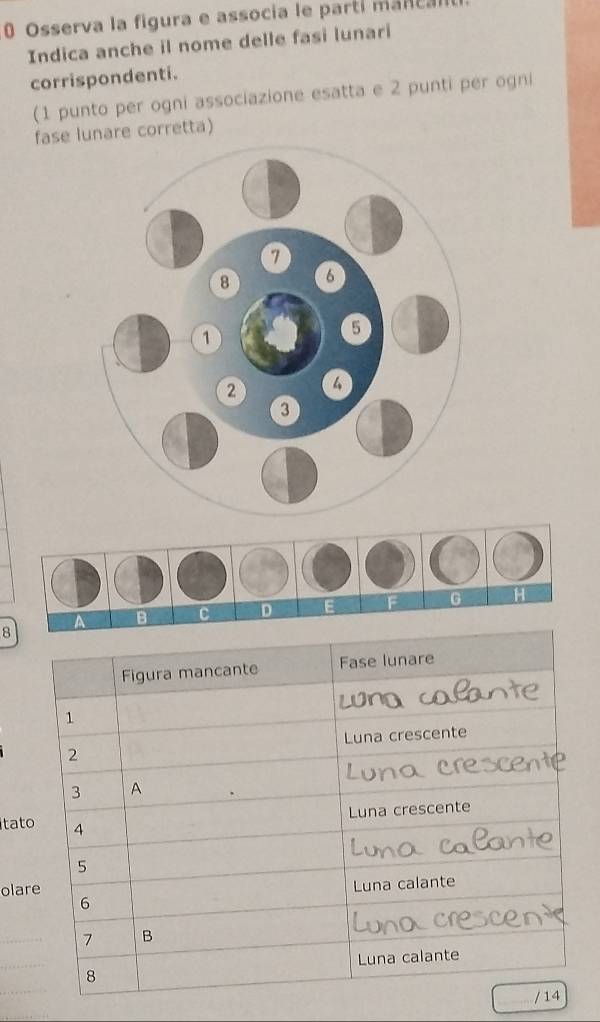 0 Osserva la figura e associa le parti mancanti.
Indica anche il nome delle fasi lunari
corrispondenti.
(1 punto per ogni associazione esatta e 2 punti per ogni
fase lunare corretta)
7
8 6
1 5
2 4
3
A B C D E F G H
8
Figura mancante Fase lunare
1 Luna calante
2 Luna crescente
3 A Luna crescente
itato
4 Luna crescente
5 Luna calante
olare
6 Luna calante
7 B Luna crescente
8 Luna calante
/ 14